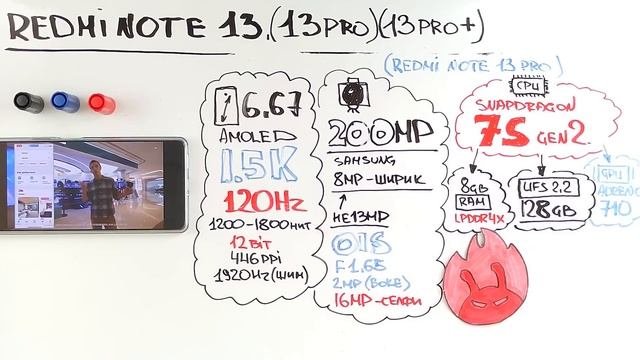 REDMI NOTE 13.(13 PRO)(13 PRO+)
(REDMI NOTE 13 PRO)
6.67
AMOLED
1.5K
120Hz
1200-1800 НИТ
12 BIT
446 PPI
1920Hz (ШИМ)
200MP
SAMSUNG
8MP-ШИРИК
НЕ 13MP
OIS
F 1.65
2MP (BOKE)
16MP-СЕЛФИ
CPU
SNAPDRAGON
7S GEN2
8GB
RAM
LPDDR4X
UFS 2.2
128GB
GPU
ADRENO
710